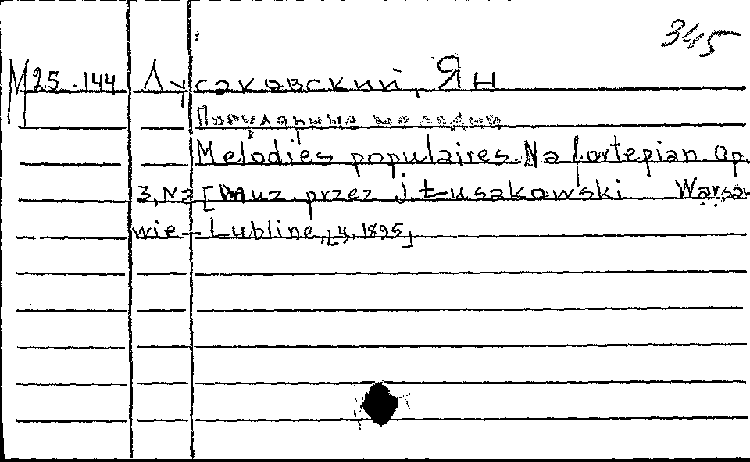 345
M25-144 Лусаковский, Ян
Популярные мелодии
Melodies populaires. Na fortepian op.
3, N2 [muz przez J. Łusakowski Warsza
wie - Lubline, [ч, 1895]